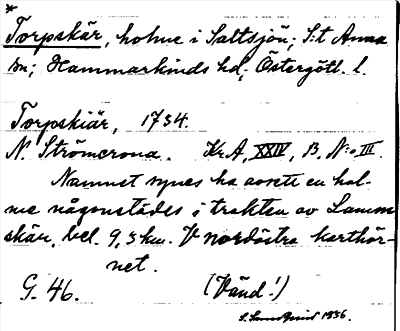 *
Torpskär, holme i Saltsjön; S:t Anna
sn; Hammarkinds hd; Östergötl. l.
Torpskiär, 1734.
N. Strömcrona. Kr.A, XXIV, B, N:o III.
Namnet synes ha avsett en hol-
me någonstädes i trakten av Lamm-
skär, bel. 9,3 km. V nordöstra karthör-
net.
G. 46. (Vänd!)
1936.